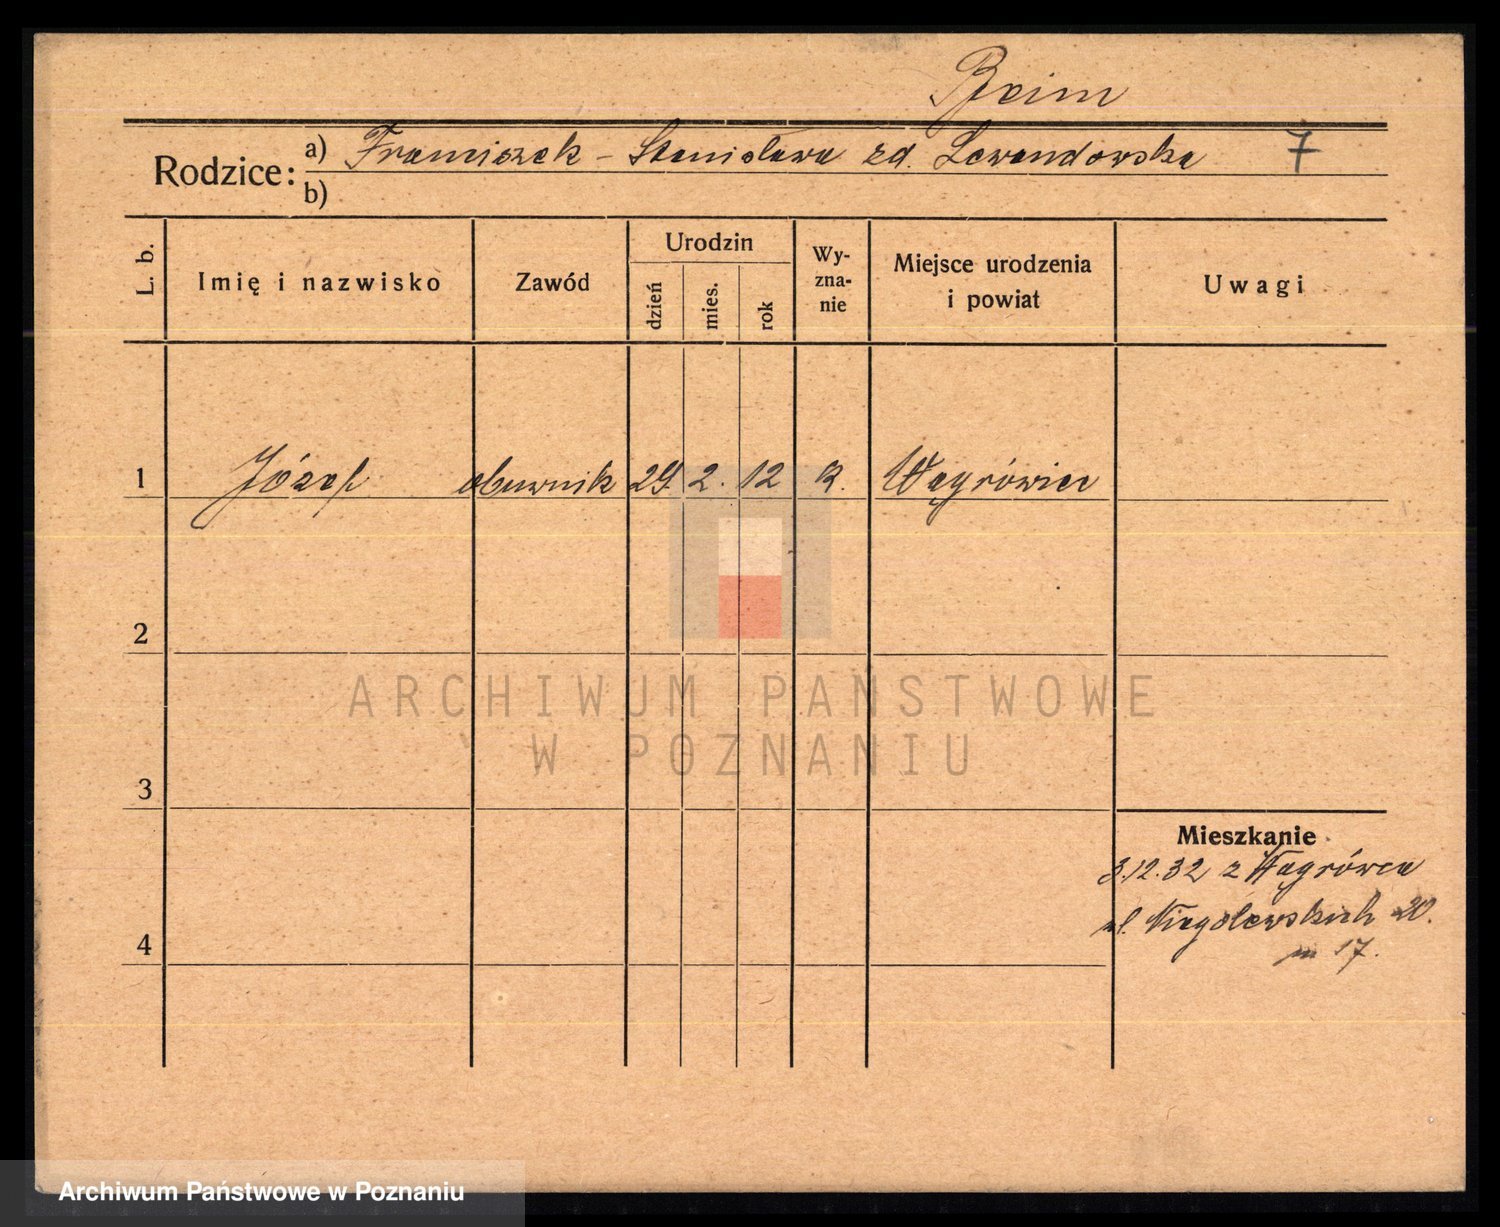 Beim
Rodzice: a) Franciszek - Stanisława zd. Lewandowska 7
b)
L. b. Imię i nazwisko Zawód Urodzin dzień mies. rok Wy-zna-nie Miejsce urodzenia i powiat Uwagi
1 Józef obuwnik 29. 2. 12 R. Wągrówiec
2
ARCHIWUM PAŃSTWOWE
W POZNANIU
3
Mieszkanie
3.12.32 z Wągrówca
ul. Niegolewskich 20.
m 17.
4
Archiwum Państwowe w Poznaniu